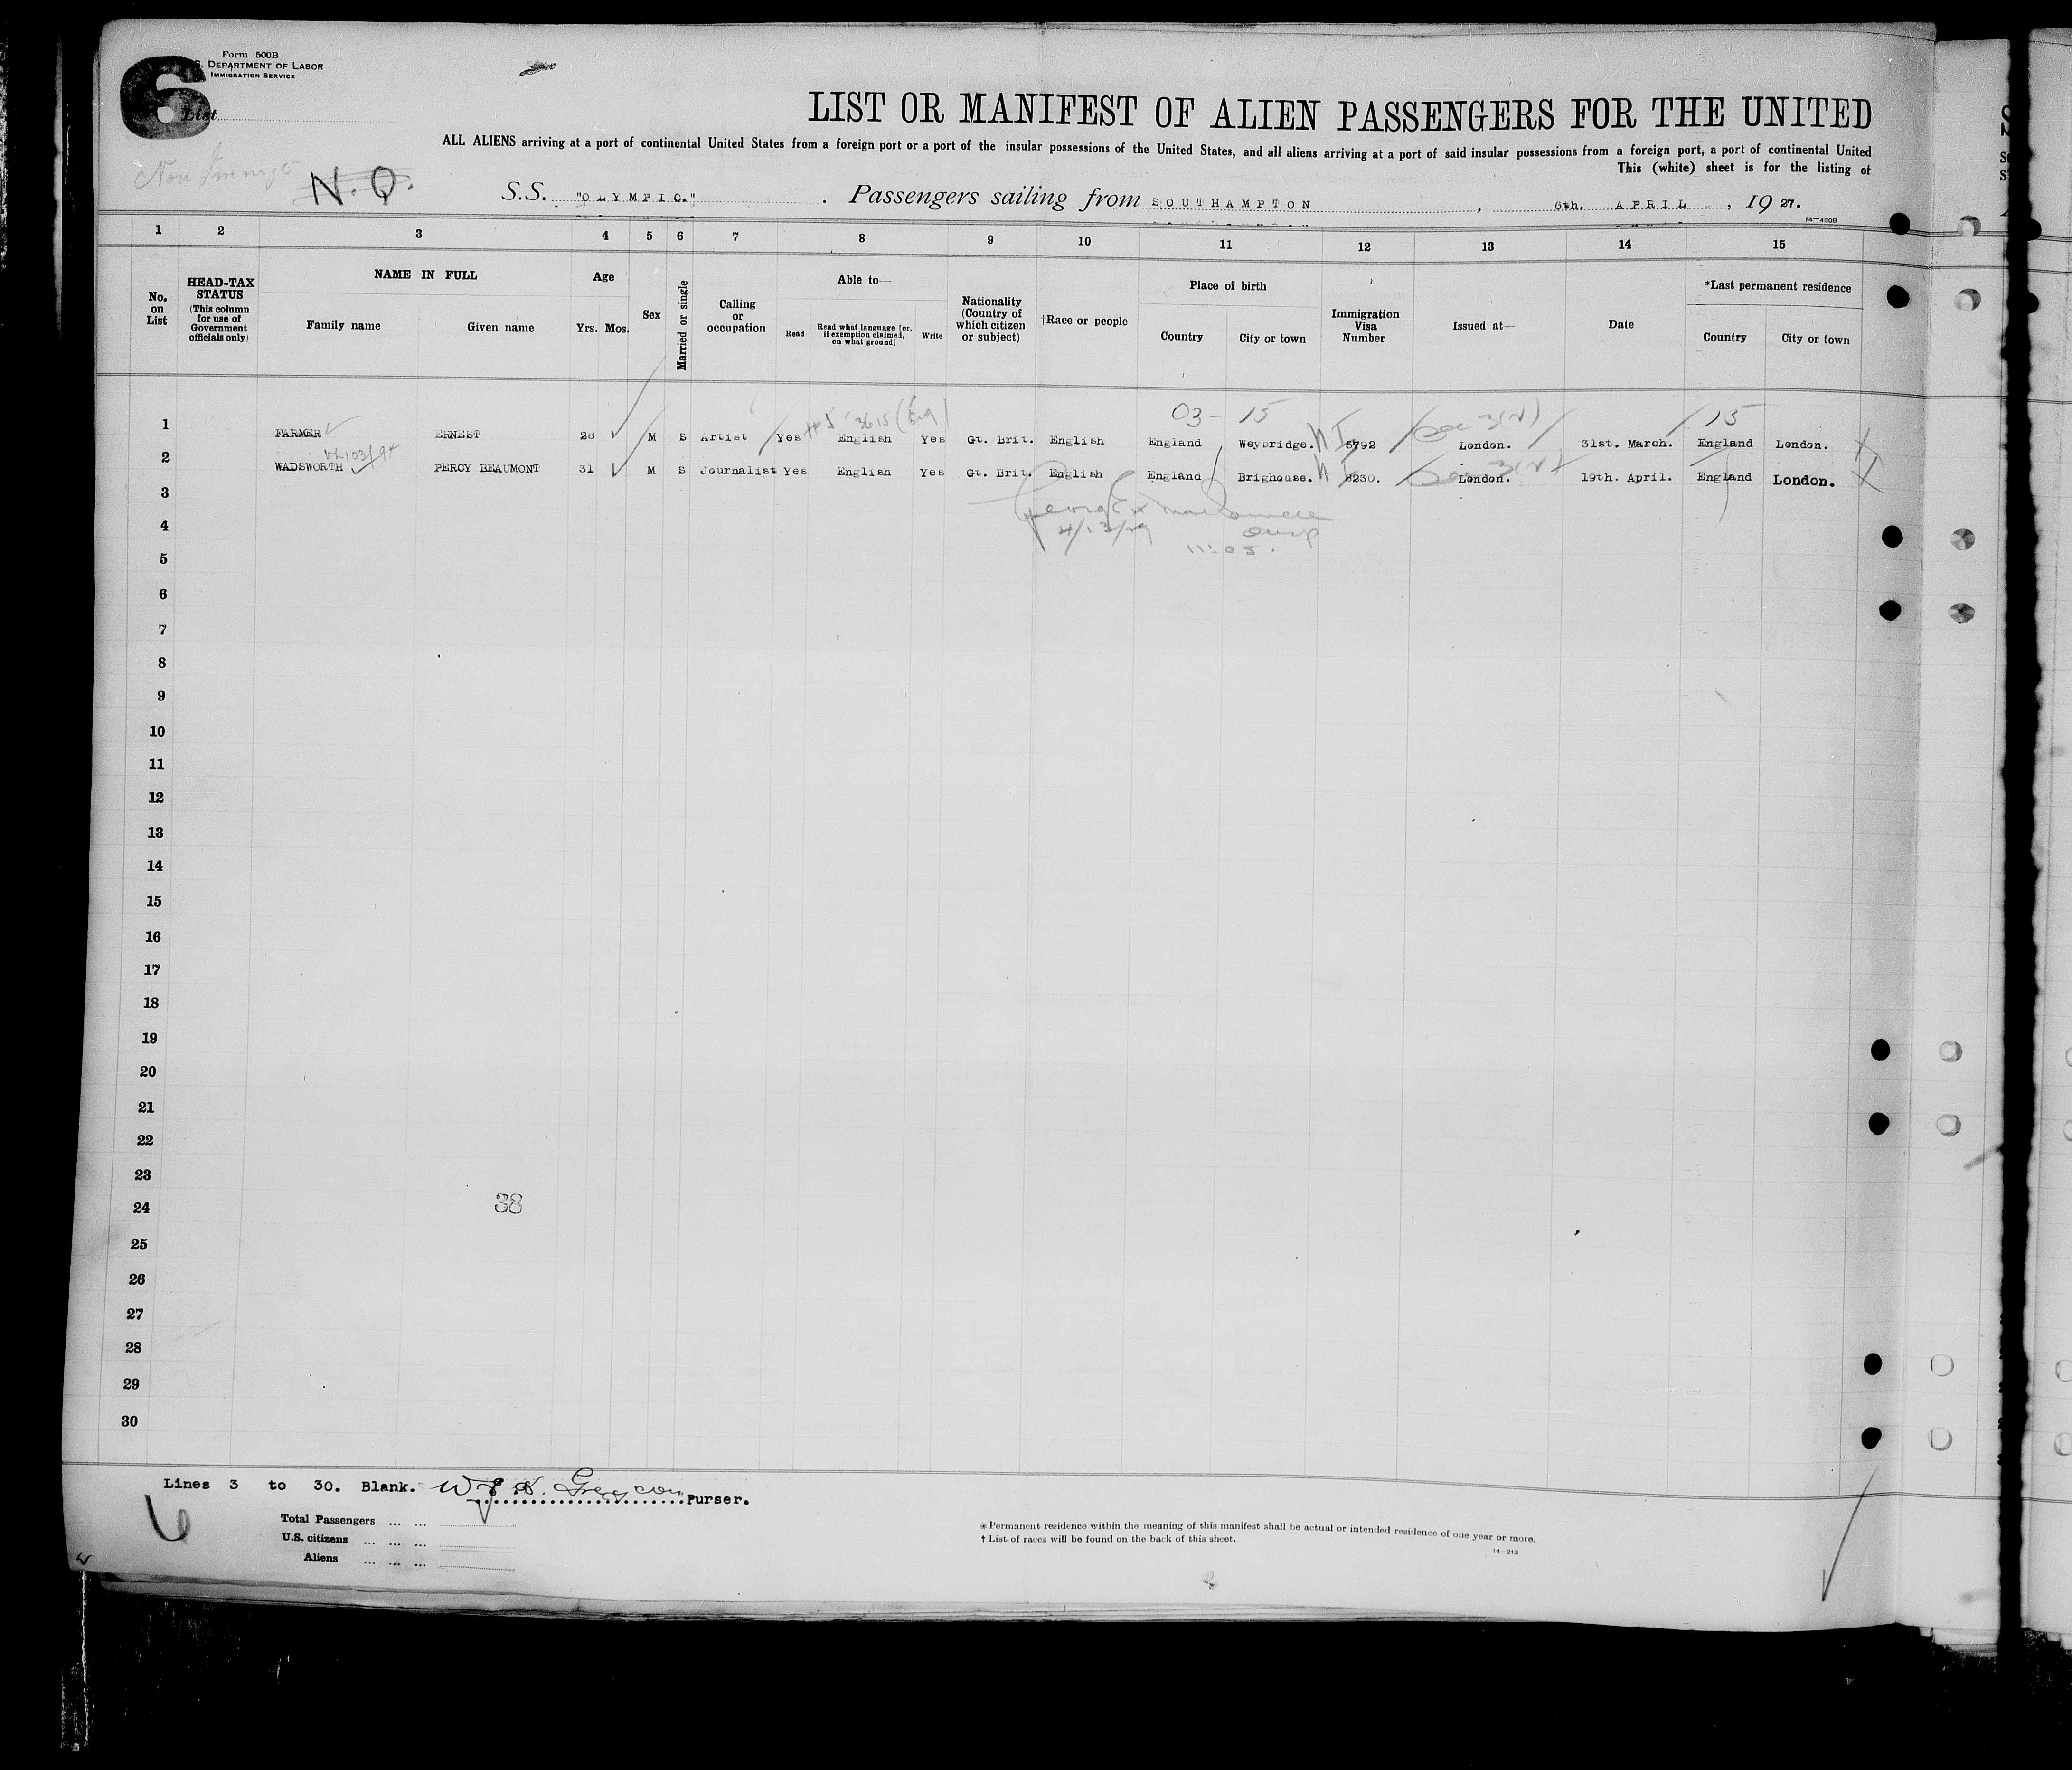 6
Form 500B
S. DEPARTMENT OF LABOR
IMMIGRATION SERVICE
List
LIST OR MANIFEST OF ALIEN PASSENGERS FOR THE UNITED
ALL ALIENS arriving at a port of continental United States from a foreign port or a port of the insular possessions of the United States, and all aliens arriving at a port of said insular possessions from a foreign port, a port of continental United
This (white) sheet is for the listing of
S.S. "OLYMPIC." Passengers sailing from SOUTHAMPTON, 6th. APRIL, 1927.
14-430B
1 2 3 4 5 6 7 8 9 10 11 12 13 14 15
No. on List
HEAD-TAX STATUS (This column for use of Government officials only)
NAME IN FULL
Family name Given name
Age
Yrs. Mos.
Sex
Married or single
Calling or occupation
Able to—
Read Read what language [or, if exemption claimed, on what ground] Write
Nationality (Country of which citizen or subject)
†Race or people
Place of birth
Country City or town
Immigration Visa Number
Issued at—
Date
*Last permanent residence
Country City or town
03 - 15 15
1 FARMER ERNEST 28 M S Artist Yes English Yes Gt. Brit. English England Weybridge. 5792 London. 31st. March. England London.
2 WADSWORTH PERCY BEAUMONT 31 M S Journalist Yes English Yes Gt. Brit. English England Brighouse. 9230. London. 19th. April. England London.
3
4
11:05.
5
6
7
8
9
10
11
12
13
14
15
16
17
18
19
20
21
22
23
24
38
25
26
27
28
29
30
Lines 3 to 30. Blank. Purser.
6
Total Passengers ... ...
U.S. citizens ... ... ...
Aliens ... ... ...
* Permanent residence within the meaning of this manifest shall be actual or intended residence of one year or more.
† List of races will be found on the back of this sheet.
14-213